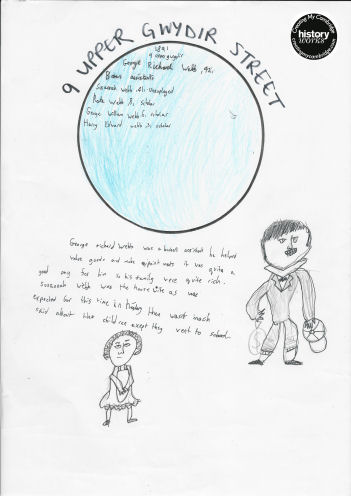 9 UPPER GWYDIR STREET
Creating My Cambridge
history
WORKS
creatingmycambridge.com
1891
9 upper gwydir
George Richard Webb, 42.
assistant
Susannah Webb 41. Unemployed
Kate Webb scholar
George William Webb scholar
Harry Edward Webb scholar
George richard Webb was a assistant he helped
value goods and make appointments it was quite a
good Job for him so his family were quite rich.
susannah webb was the house wife as was
expected for this time in there wasnt much
said about their children except they went to school.